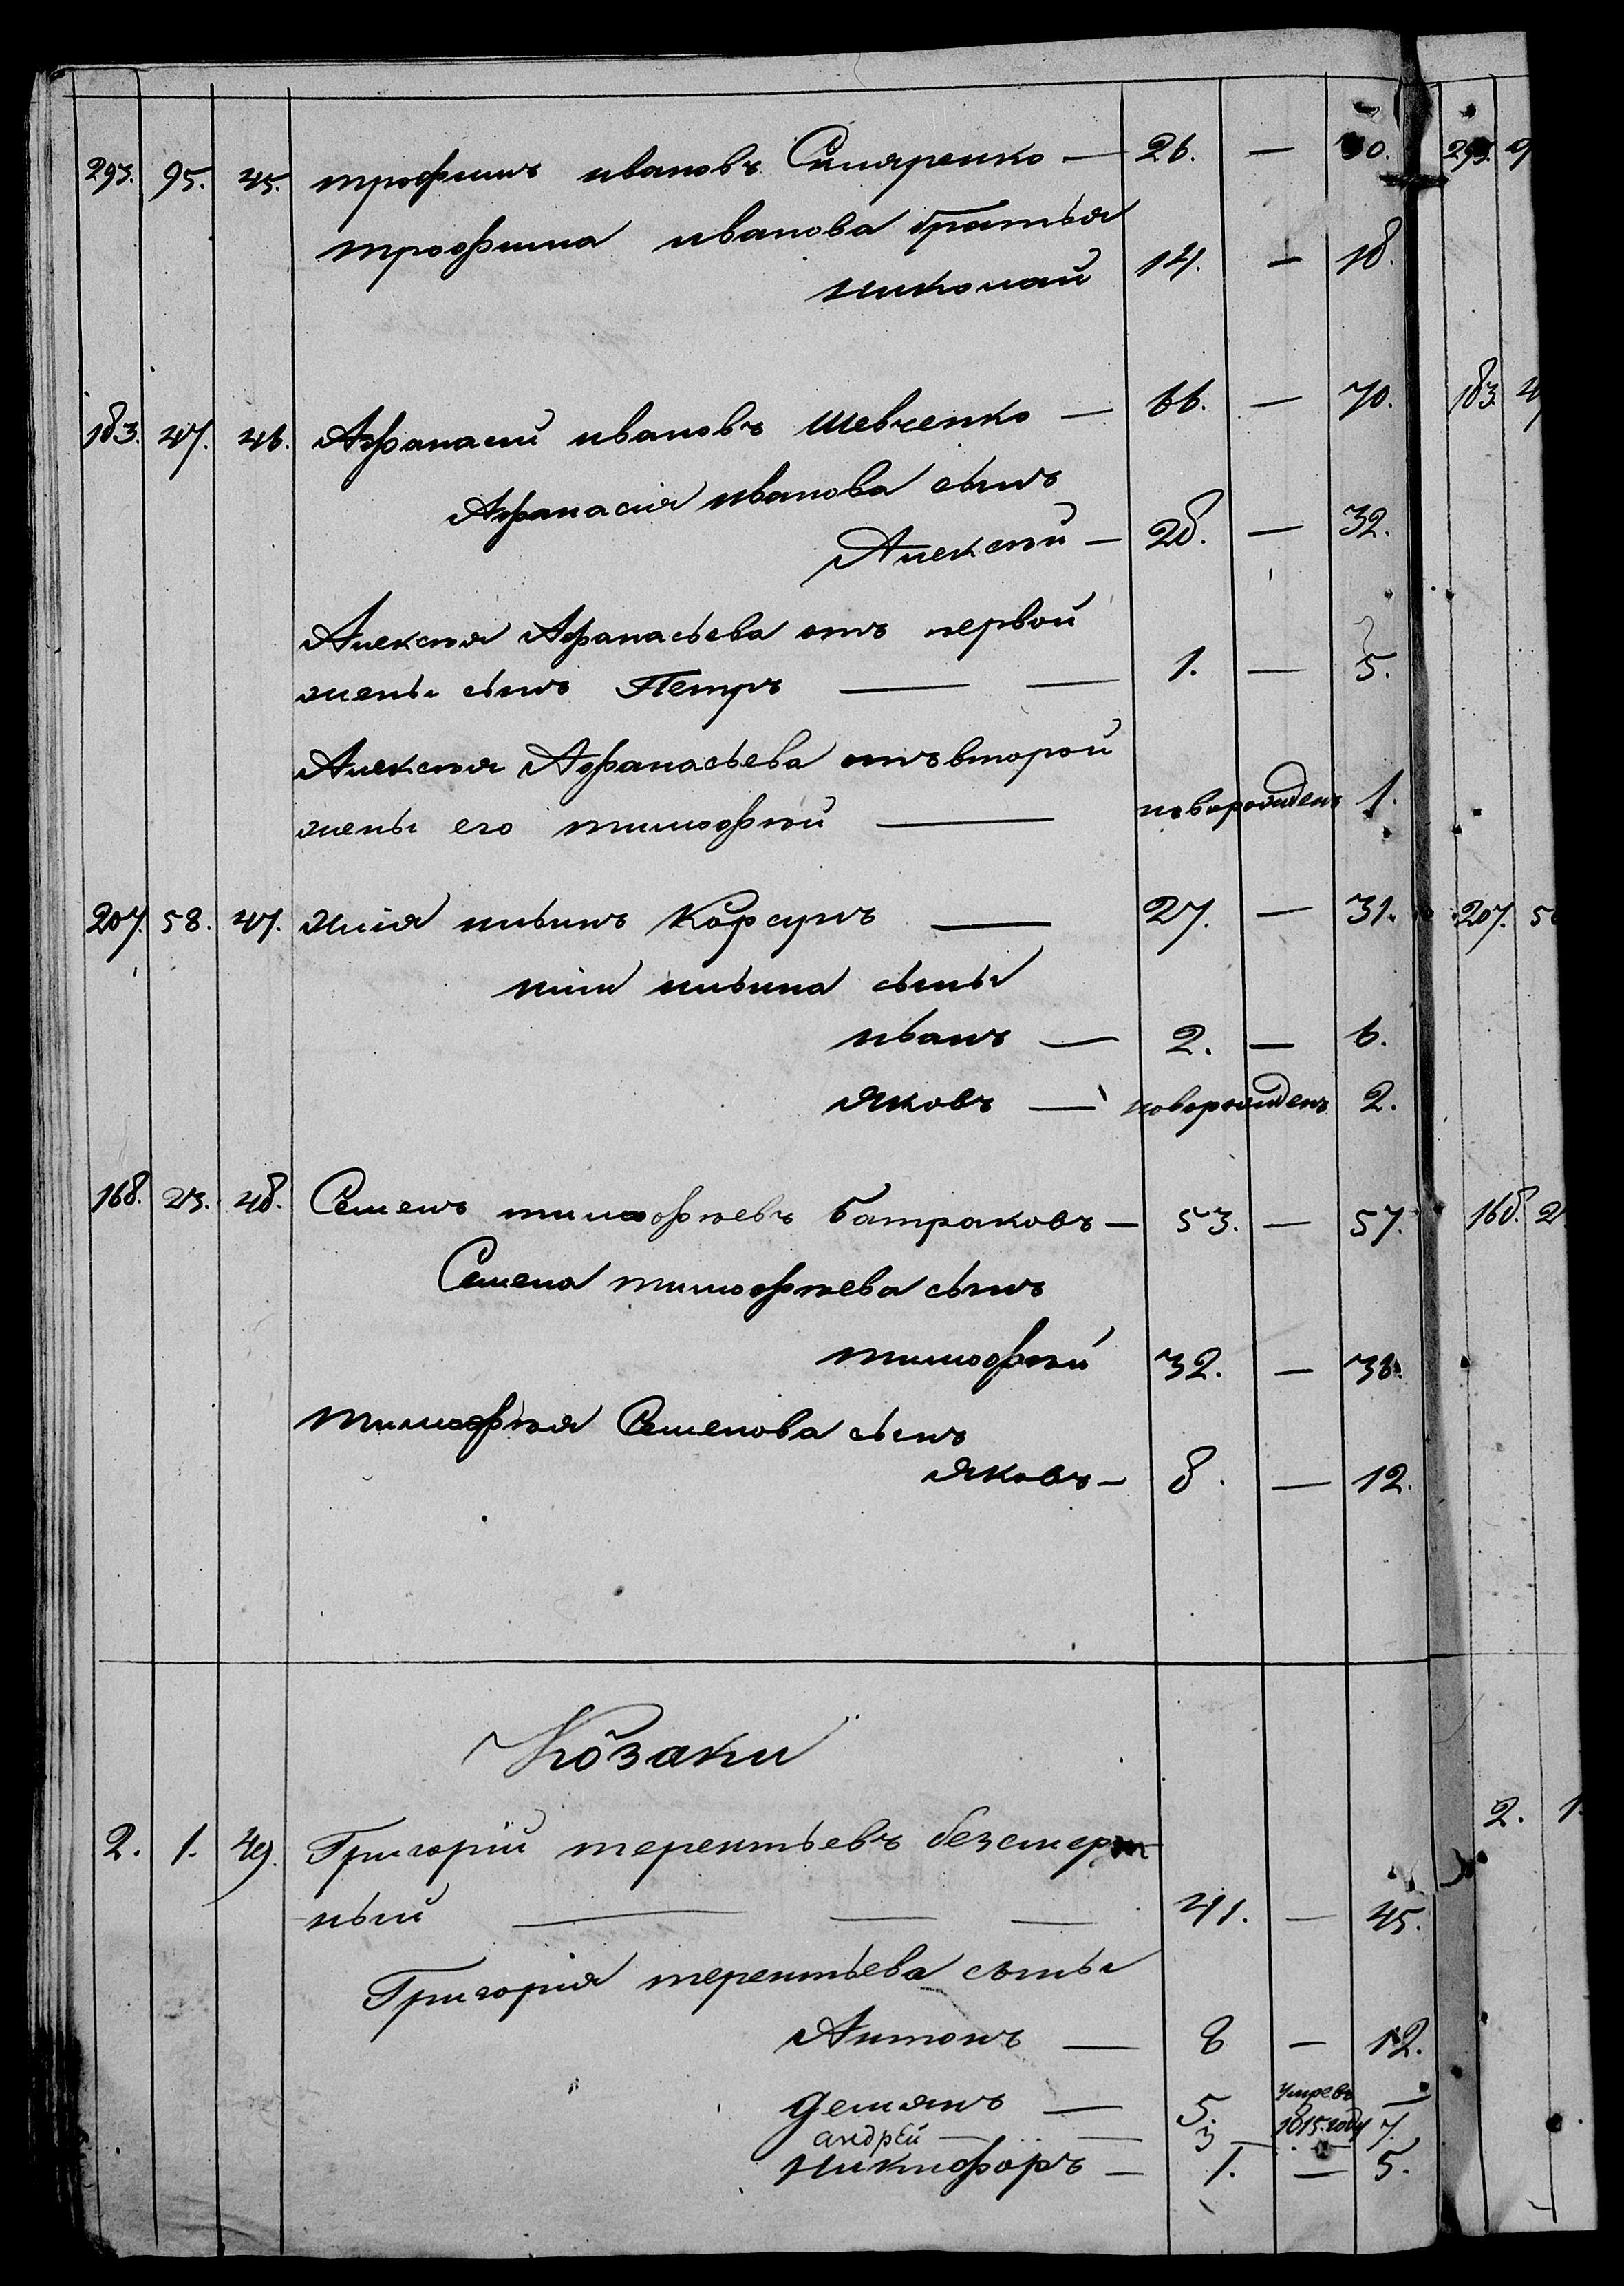 293. 95. 45. трофимъ ивановъ Скляренко — 26. — 30. 293. 9
трофима иванова братья
николай 14. — 18.
183. 47. 46. Афанасий ивановъ шевченко — 66. — 70. 183. 4
Афанасия иванова сынъ
Алексѣй — 28. — 32.
Алексѣя Афанасьева отъ первой
жены сынъ Петръ — — 1. — 5.
Алексѣя Афанасьева отъ второй
жены его тимофѣй — новорожденъ 1.
207. 58. 47. илія ильинъ Корсунъ — 27. — 31. 207. 5
иліи ильина сыны
иванъ — 2. — 6.
яковъ — новорожденъ 2.
168. 23. 48. Семенъ тимофѣевъ батраковъ — 53. — 57. 168. 2
Семена тимофѣева сынъ
тимофѣй 32. — 36.
тимофѣя Семенова сынъ
яковъ — 8. — 12.
Козаки
2. 1. 49. Григорій терентьевъ безсмерт 2. 1
ный — — — 41. — 45.
Григорія терентьева сыны
Антонъ — 8 — 12.
демянъ — 5. умре въ 1815. году —
андрей — — 3 — 7.
никифоръ — 1. — 5.